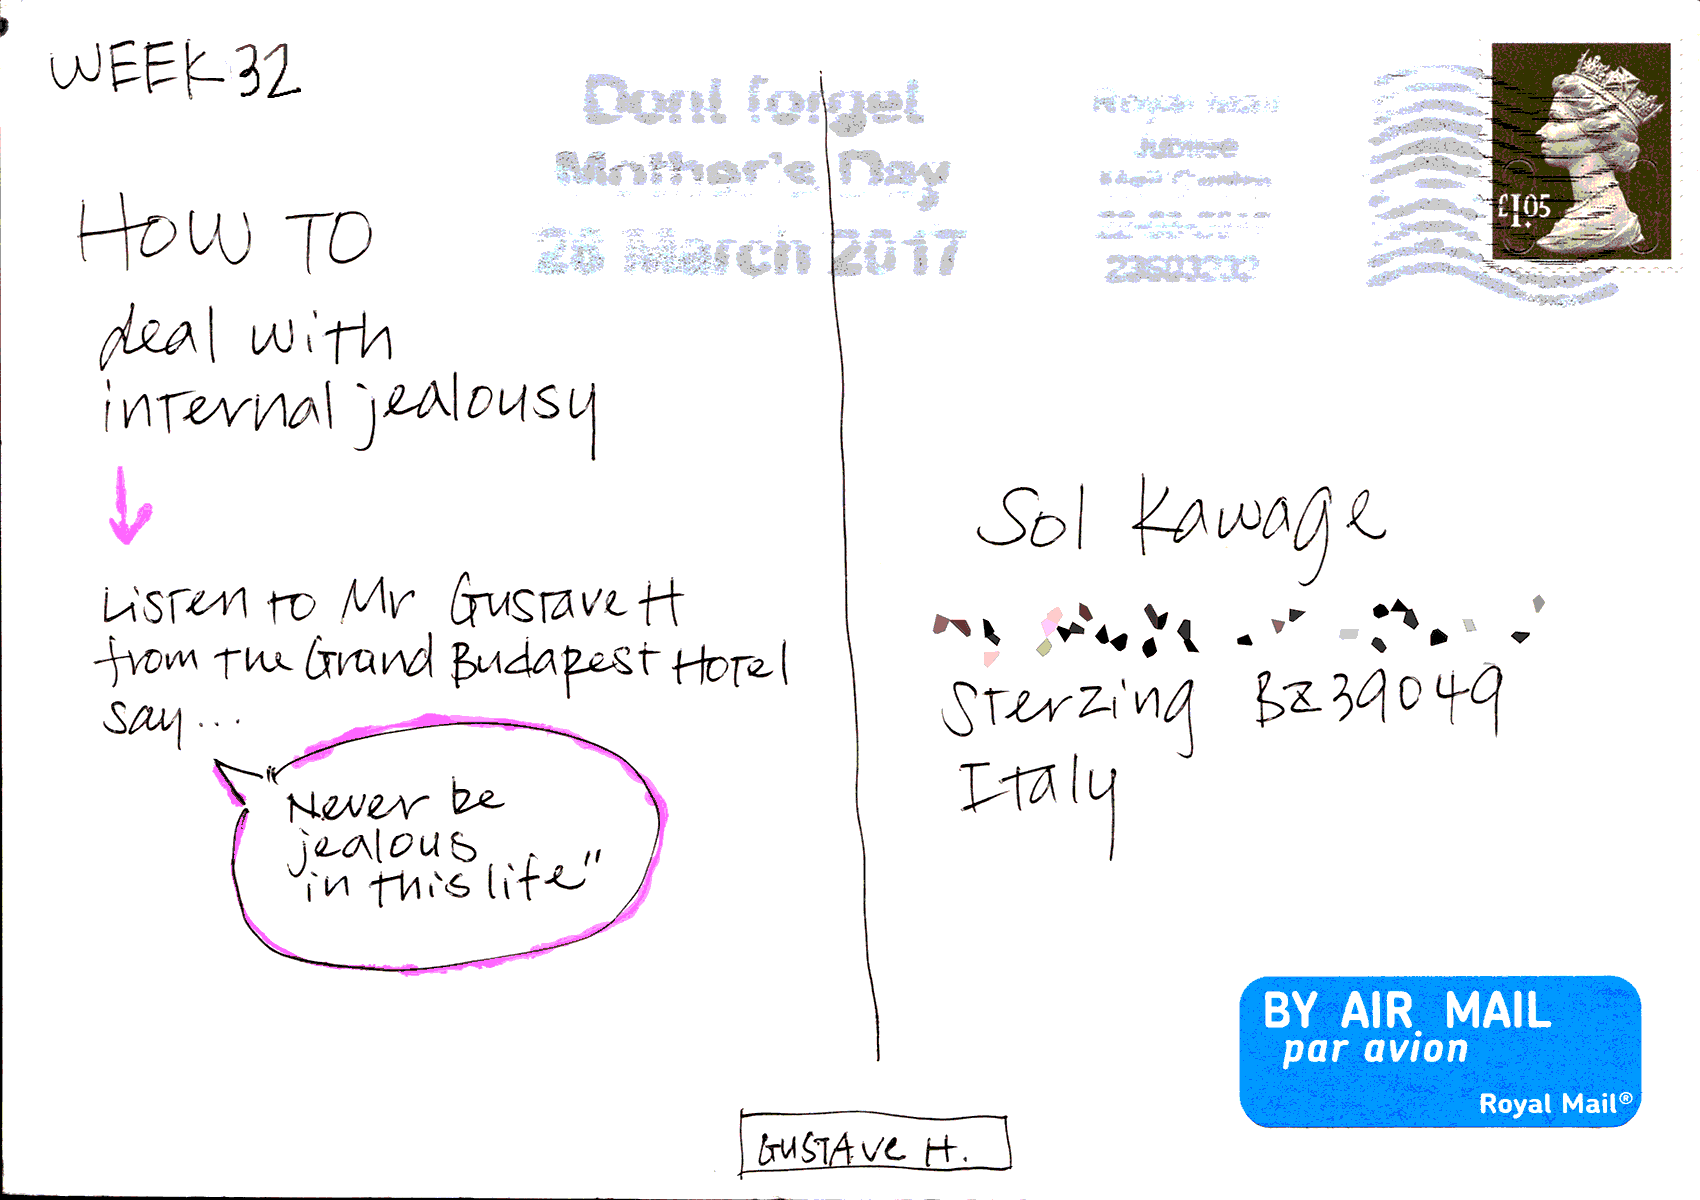 WEEK 32
HOW TO
deal with
internal jealousy
Listen to Mr Gustave H
from the Grand Budapest Hotel
say...
"Never be
jealous
in this life"
Dont forget
Mother's Day
26 March 2017
Royal Mail
£1.05
Sol Kawage
Sterzing BZ 39049
Italy
BY AIR MAIL
par avion
Royal Mail®
GUSTAVE H.